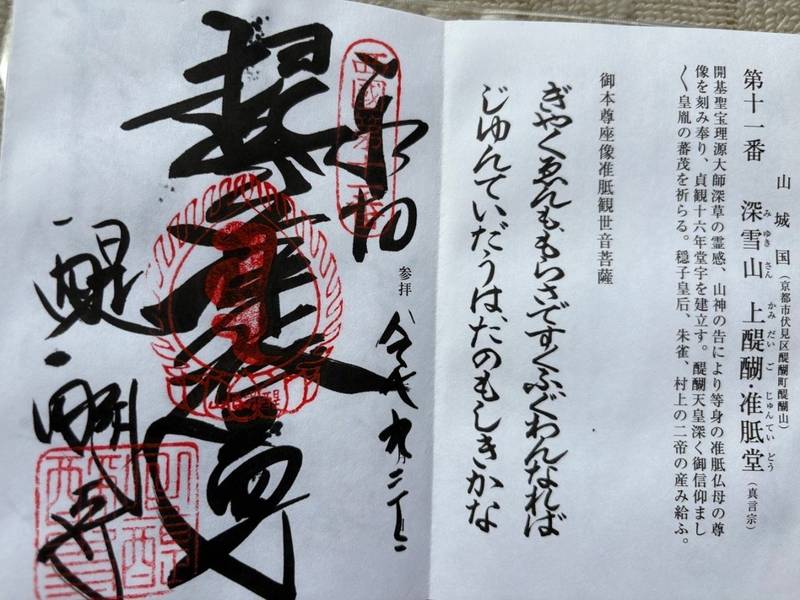 山城国（京都市伏見区醍醐町醍醐山）
第十一番 深雪山 上醍醐・准胝堂（真言宗）
みゆきさん かみだいご じゅんていどう
開基聖宝理源大師深草の霊感、山神の告により等身の准胝仏母の尊
像を刻み奉り、貞観十六年堂宇を建立す。醍醐天皇深く御信仰まし
〱皇胤の蕃茂を祈らる。穏子皇后、朱雀、村上の二帝の産み給ふ。
御本尊座像准胝観世音菩薩
ぎやくゑんも、もらさですくふぐわんなれば
じゆんていだうは、たのもしきかな
奉拝
参拝
醍醐寺